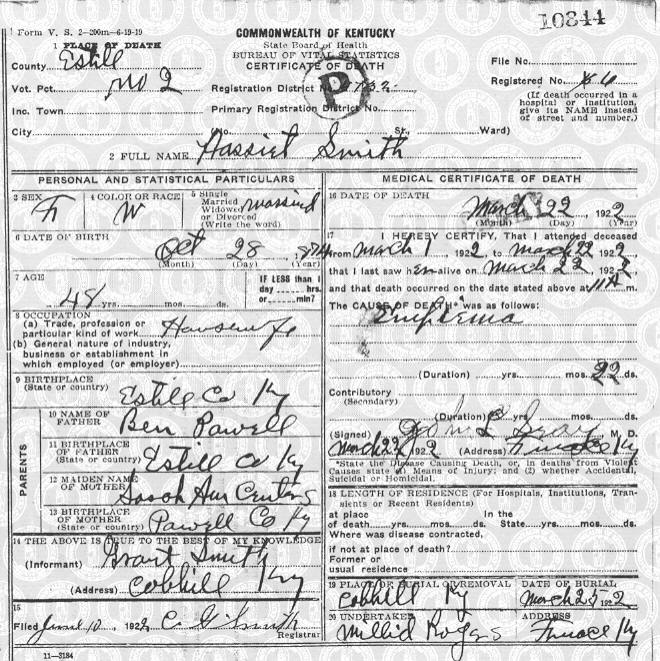 Form V. S. 2—200m—6-19-19
10844
COMMONWEALTH OF KENTUCKY
State Board of Health
BUREAU OF VITAL STATISTICS
CERTIFICATE OF DEATH
1 PLACE OF DEATH
County Estill
Vot. Pct. No 2
Inc. Town
City
D
Registration District No.
Primary Registration District No.
No. St., Ward)
File No.
Registered No.
(If death occurred in a
hospital or institution,
give its NAME instead
of street and number.)
2 FULL NAME Harriet Smith
PERSONAL AND STATISTICAL PARTICULARS
3 SEX F
4 COLOR OR RACE W
5 Single
Married
Widowed
or Divorced
(Write the word) married
6 DATE OF BIRTH
Oct 28
(Month) (Day) (Year)
7 AGE
48 yrs. mos. ds.
IF LESS than 1
day hrs.
or min?
8 OCCUPATION
(a) Trade, profession or
particular kind of work Housewife
(b) General nature of industry,
business or establishment in
which employed (or employer)
9 BIRTHPLACE
(State or country) Estill Co Ky
PARENTS
10 NAME OF
FATHER Ben Powell
11 BIRTHPLACE
OF FATHER
(State or country) Estill Co Ky
12 MAIDEN NAME
OF MOTHER Sarah Ann
13 BIRTHPLACE
OF MOTHER
(State or country) Powell Co Ky
14 THE ABOVE IS TRUE TO THE BEST OF MY KNOWLEDGE
(Informant) Grant Smith
(Address) Cobhill Ky
15
Filed June 10, 1922 C. G. Smith
Registrar
11—3184
MEDICAL CERTIFICATE OF DEATH
16 DATE OF DEATH
March 22, 1922
(Month) (Day) (Year)
17 I HEREBY CERTIFY, That I attended deceased
from March 1 1922 to March 22 1922
that I last saw her alive on March 22, 1922
and that death occurred on the date stated above at 11 A m.
The CAUSE OF DEATH* was as follows:
Empiema
(Duration) yrs. mos. 22 ds.
Contributory
(Secondary)
(Duration) yrs. mos. ds.
(Signed) M. D.
March 22 1922 (Address) Furnace Ky
*State the Disease Causing Death, or, in deaths from Violent
Causes state (1) Means of Injury; and (2) whether Accidental,
Suicidal or Homicidal.
18 LENGTH OF RESIDENCE (For Hospitals, Institutions, Tran-
sients or Recent Residents)
at place In the
of death yrs. mos. ds. State yrs. mos. ds.
Where was disease contracted,
if not at place of death?
Former or
usual residence
19 PLACE OF BURIAL OR REMOVAL
Cobhill Ky
DATE OF BURIAL
March 25 1922
20 UNDERTAKER
Rogers
ADDRESS
Furnace Ky